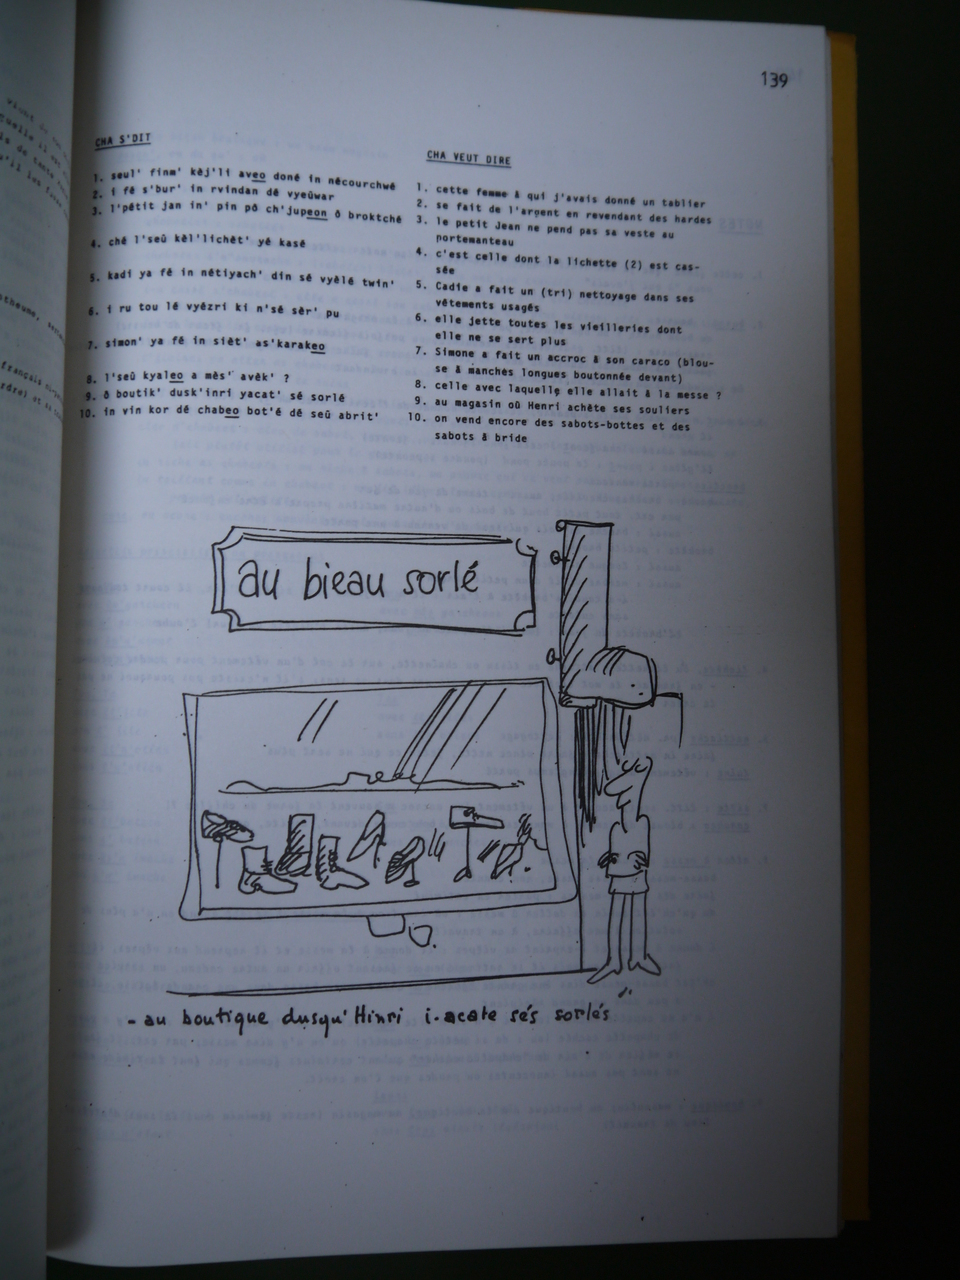 139
CHA S'DIT
1. seul' finm' kèj'li aveo doné in nécourchwé
2. i fé s'bur' in rvindan dé vyeûwar
3. l'pétit jan in' pin pô ch'jupeon ô broktché
4. ché l'seû kèl'lichèt' yé kasé
5. kadi ya fé in nétiyach' din sé vyèlé twin'
6. i ru tou lé vyézri ki n'sé sèr' pu
7. simon' ya fé in siét' as'karakeo
8. l'seû kyaleo a mès' avèk' ?
9. ô boutik' dusk'inri yacat' sé sorlé
10. in vin kor dé chabeo bot'é dé seû abrit'
CHA VEUT DIRE
1. cette femme à qui j'avais donné un tablier
2. se fait de l'argent en revendant des hardes
3. le petit Jean ne pend pas sa veste au
portemanteau
4. c'est celle dont la lichette (2) est cas-
sée
5. Cadie a fait un (tri) nettoyage dans ses
vêtements usagés
6. elle jette toutes les vieilleries dont
elle ne se sert plus
7. Simone a fait un accroc à son caraco (blou-
se à manches longues boutonnée devant)
8. celle avec laquelle elle allait à la messe ?
9. au magasin où Henri achète ses souliers
10. on vend encore des sabots-bottes et des
sabots à bride
au bieau sorlé
- au boutique dusqu'Hinri i-acate sés sorlés